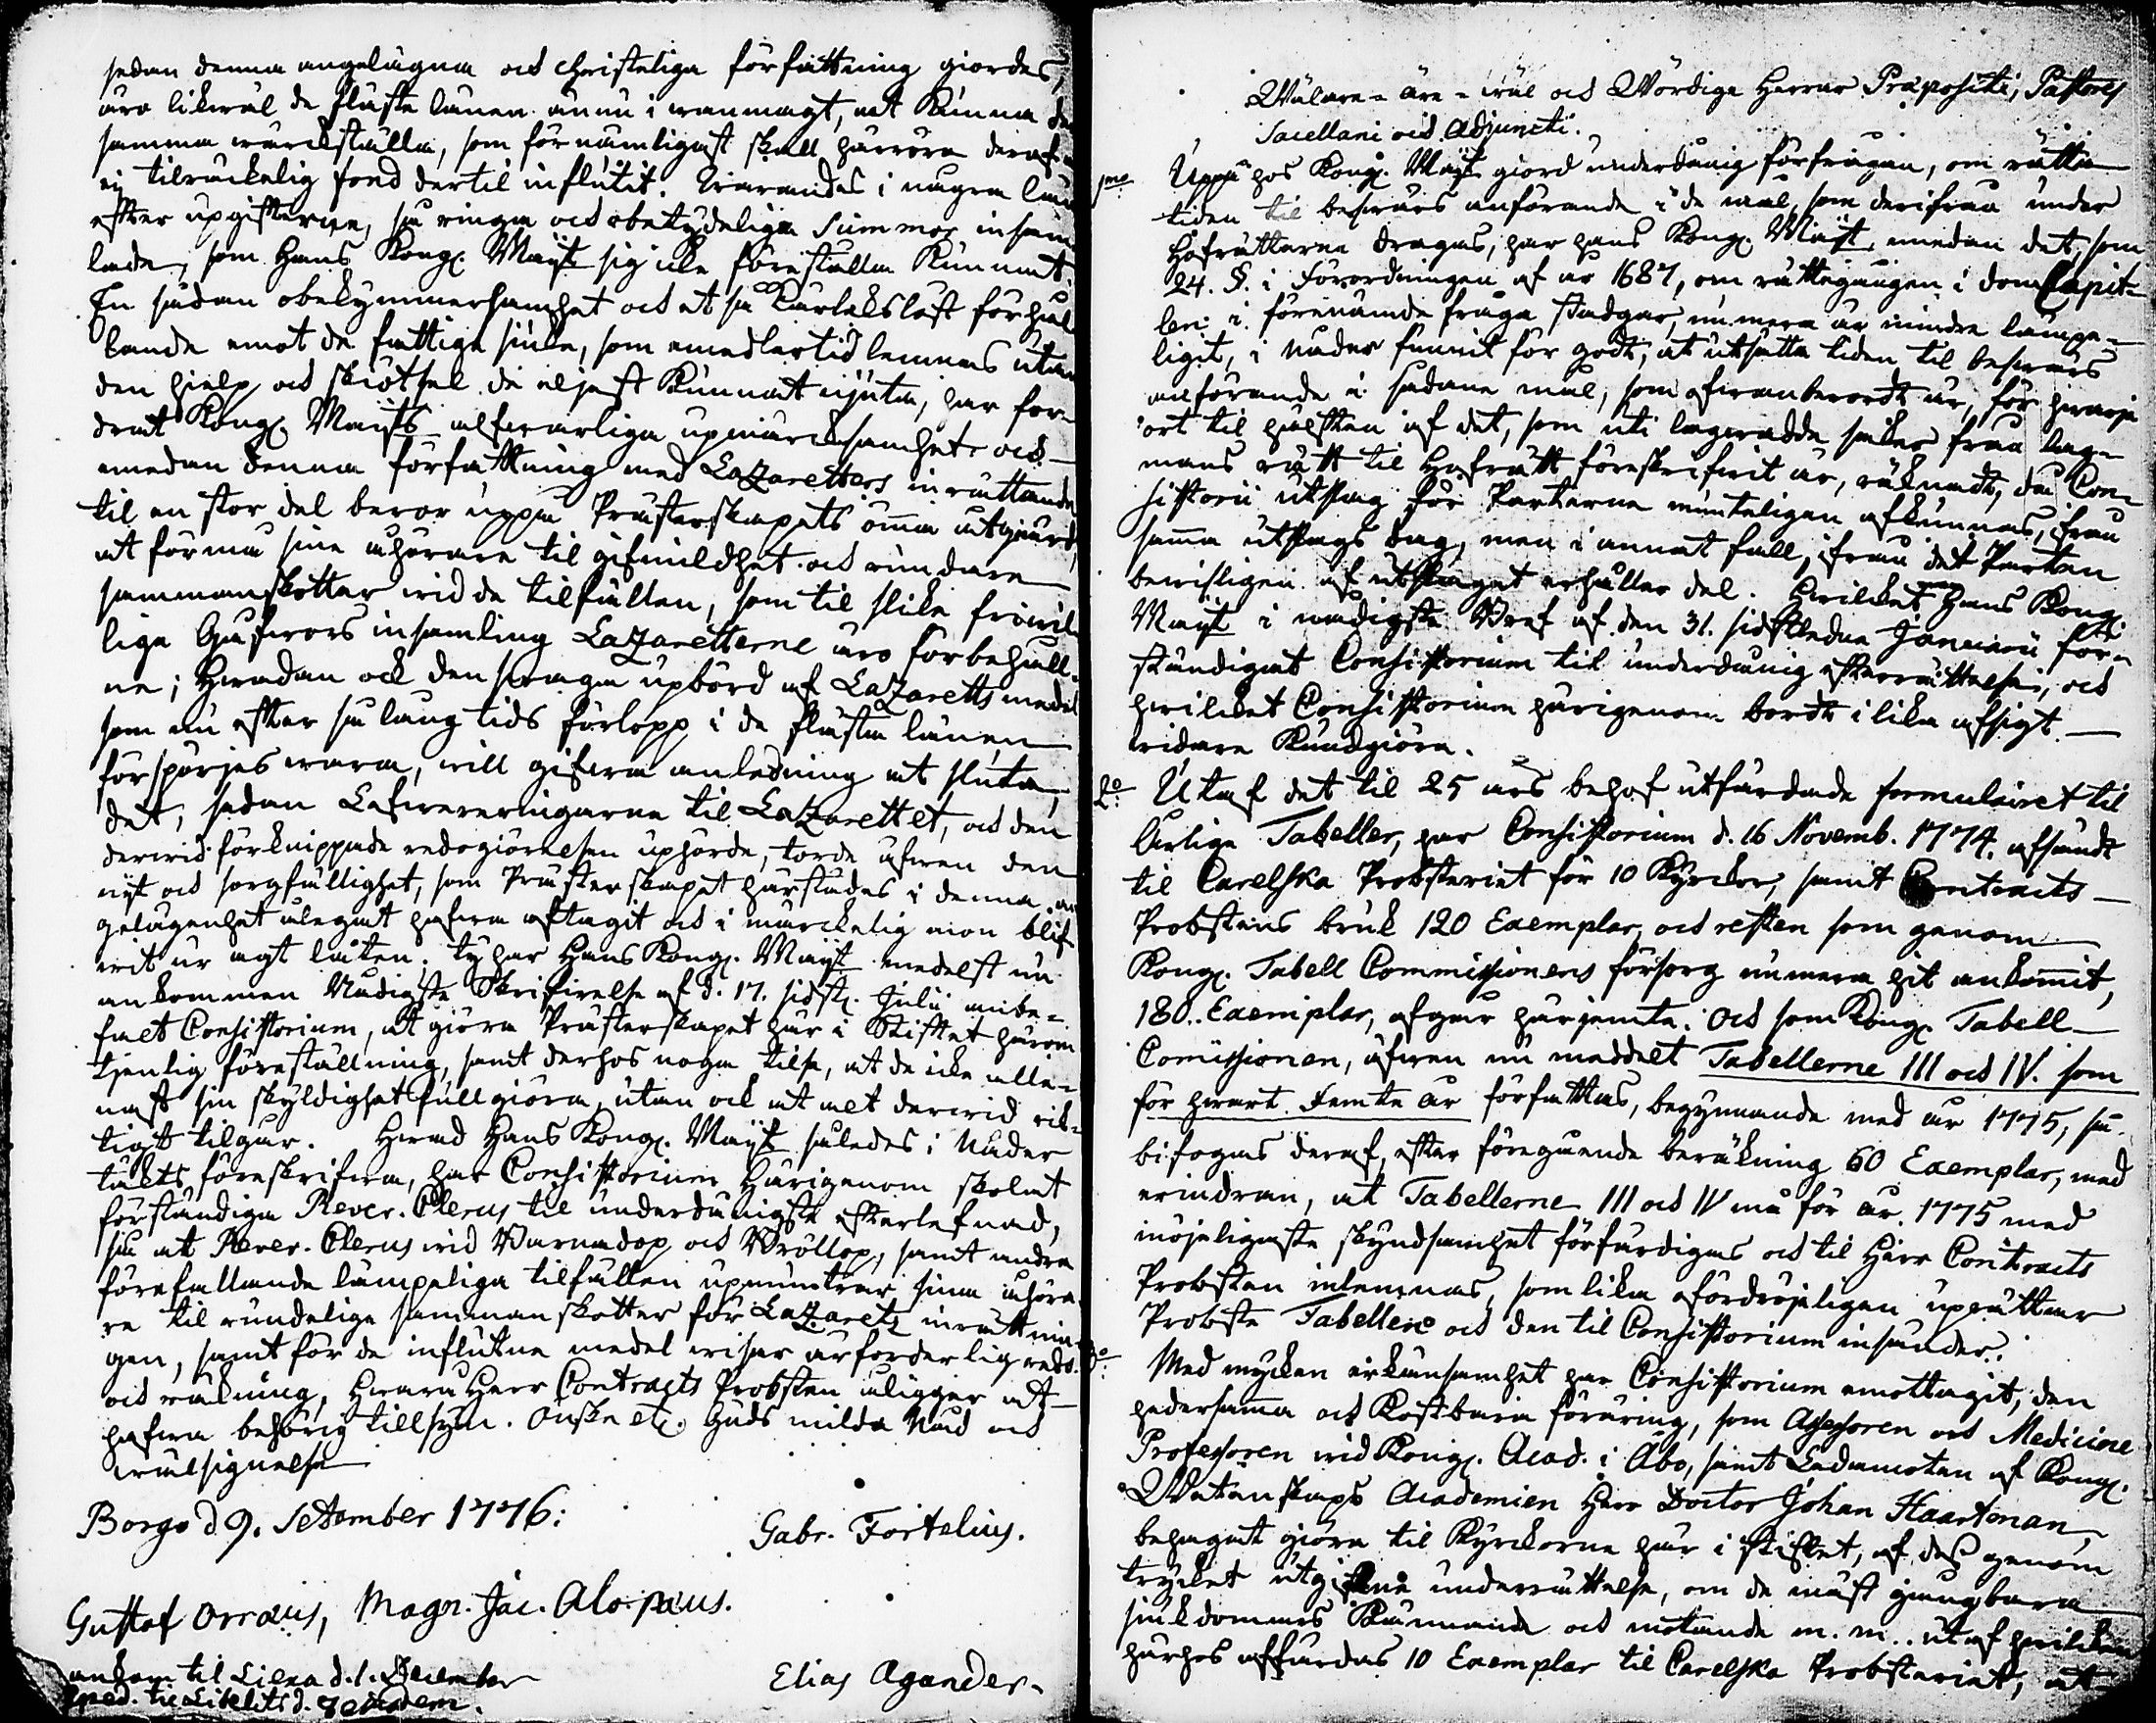 sedan denna angelägna och christeliga författning giordes,
äro likwäl de fläste länen ännu i wanmagt, at kunna den
samma wärckställa, som förnämligast skall härröra deraf at
ej tilräckelig fond dertil influtit. Warandes i några län
efter upgifterne, så ringa och obetydeliga Summor insam
lade, som Hans Kongl. Maijt sig icke föreställa kunnat.
En sådan obekymmersamhet och et så kärlekslöst förhål
lande emot de fattiga siuka, som emedlertid lemnas utan
den hjelp och skiötsel de eljest kunnat niuta, har for-
drat Kongl. Maijts alfwarliga upmärcksamhet och
emedan denna författning med Lazaretters inrättande
til en stor del beror uppå Prästerskapets ömma åtgiärd
at förmå sine åhörare til gifmildhet och rundare
sammanskotter wid de tilfällen, som til slike friwil
liga Gåfwors insamling Lazaretterne äro förbehåll-
ne; Hwadan ock den swaga upbörd af Lazaretts medel
som nu efter så lång tids förlopp i de fläste länen
förspörjes wara, will gifwa anledning at sluta,
det, sedan Lefwereringarne til Lazarettet, och den
derwid förknippade redogiörelsen uphörde, torde äfwen den
nijt och sorgfällighet, som Prästerskapet härstädes i denna an
gelägenhet ålegat hafwa aftagit och i märckelig mon blif
wit ur agt låten. Ty har Hans Kongl. Maijt medelst nu
ankommen Nådigste Skrifwelse af d. 17. sidstl. Julii anbe-
falt Consistorium, at giöra Prästerskapet här i Stiftet härom
tjenlig föreställning, samt derhos noga tilse, at de icke alle-
nast sin skyldighet fullgiöra, utan ock at alt derwid rik-
tigt tilgår. Hwad Hans Kongl. Maijt således i Nåder
täckts föreskrifwa, har Consistorium härigenom skolat
förständiga Rever. Clerus til underdånigste efterlefnad,
så at Rever. Clerus wid Barnadop och Bröllop, samt andra
förefallande lämpeliga tilfällen upmuntrar sina åhöra
re til rundelige sammanskotter för Lazaretz inrättnin
gen, samt för de influtne medel wisar årforderlig redo-
och räkning, hwarå Herr Contracts Probsten åligger at
hafwa behörig tillsyn. Önske etc. Guds milda Nåd och
wälsignelse
Borgo d. 9. September 1776:
Gabr. Fortelius.
Gustaf Orræus, Magn. Jac. Alopæus.
Elias Agander.
ankom til Lilexa d. 1. December
exped. til Libelits d. 7 ejusdem.
Wälare- äre- wäl och Wördige Herrar Præpositi, Pastores
Sacellani och Adjuncti.
1mo Uppå hos Kongl. Maijt giord underdånig förfrågan, om rätta
tiden til beswärs anförande i de mål, som derifrån under
Hofrätterna dragas, har hans Kongl. Maijt, emedan det, som
24. §. i Förordningen af år 1687, om rättegången i DomCapit-
len i förenämde fråga stadgar, nu mera är mindre lämpe-
ligit, i Nåder funnit för godt, at utsätta tiden til beswärs
anförande i sådane mål, som ofwanberördt är, för hwarje
ort til hälften af det, som uti lagwadde saker från lag-
mans rätt til Hofrätt föreskrifwit är, räknadt, då Con-
sistorii utslag för Parterne munteligen afkunnas, ifrån
samma utslags dag, men i annat fall, ifrån det Parten
bewisligen af utslaget erhåller del. Hwilket Hans Kongl.
Maijt i nådigste Bref af den 31. sidstledne Januarii för-
ständigat Consistorium til underdånig efterrättelse, och
hwilket Consistorium härigenom bordt i lika afsigt
widare kundgiöra.
2o Utaf det til 25 års behof utfärdade formulairet til
Årlige Tabeller, har Consistorium d. 16 Novemb. 1774. afsändt
til Carelska Probsteriet för 10 Kyrckor, samt Contracts
Probstens bruk 120 Exemplar, och resten som genom
Kongl. Tabell Commissionens försorg nu mera hit ankommit,
180. Exemplar, afgår härjemte. Och som Kongl. Tabell
Comissionen, äfwen nu meddelt Tabellerne III och IV. som
för hwart femte år författas, begynnande med år 1775, så
bifogas deraf, efter föregående beräkning 60 Exemplar, med
erindran, at Tabellerne III och IV må för år 1775 med
möjeligaste skyndsamhet förfärdigas och til Herr Contracts
Probsten inlemnas, som lika ofördröjeligen uprättar
Probste Tabellerne och den til Consistorium insänder.
3o Med mycken ärkänsamhet har Consistorium emottagit, den
hedersamma och kostbara föräring, som Assessoren och Medicinæ
Professoren wid Kongl. Acad. i Åbo, samt Ledamoten af Kongl.
Wetenskaps Academien Herr Doctor Johan Haartman,
behagat giöra til Kyrckorne här i stiftet, af des genom
trycket utgifne underrättelse, om de mäst gångbara
siukdommars kännande och motande m. m. utaf hwilken
härhos affärdas 10 Exemplar til Carelska Probsteriet, at